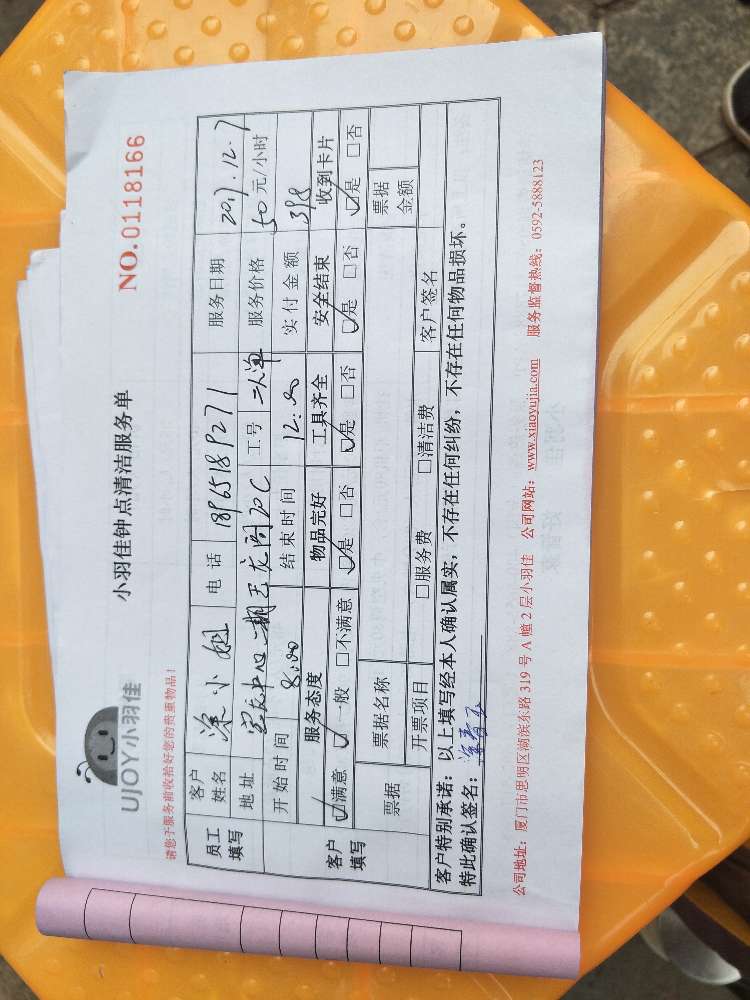 UJOY小羽佳
小羽佳钟点清洁服务单
NO.0118166
请您于服务前收拾好您的贵重物品！
员工填写 客户姓名 涂小姐 电话 18965189271 服务日期 2017.12.7
地址 中心二期 龙阁20C 工号 二人单 服务价格 50元/小时
开始时间 8:00 结束时间 12:00 实付金额 398
客户填写 服务态度 物品完好 工具齐全 安全结束 收到卡片
☑满意 ☑一般 □不满意 ☑是 □否 ☑是 □否 ☑是 □否 ☑是 □否
票据 票据名称 票据金额
开票项目 □服务费 □清洁费 客户签名
客户特别承诺：以上填写经本人确认属实，不存在任何纠纷，不存在任何物品损坏。
特此确认签名：
公司地址：厦门市思明区湖滨东路 319 号 A 幢 2 层小羽佳 公司网站：www.xiaoyujia.com 服务监督热线：0592-5888123